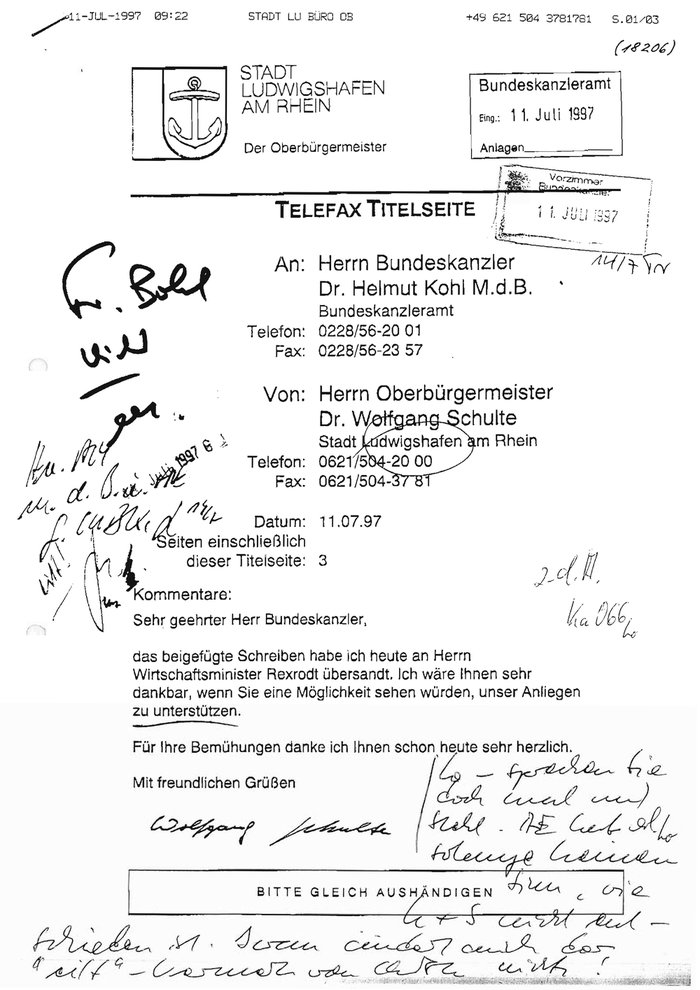 11-JUL-1997 09:22 STADT LU BÜRO OB +49 621 504 3781781 S.01/03
(18206)
STADT
LUDWIGSHAFEN
AM RHEIN
Der Oberbürgermeister
Bundeskanzleramt
Eing.: 11. Juli 1997
Anlagen
Vorzimmer
Bundeskanzler
11. JULI 1997
14/7
TELEFAX TITELSEITE
Fr. Bohl
An: Herrn Bundeskanzler
Dr. Helmut Kohl M.d.B.
Bundeskanzleramt
Telefon: 0228/56-20 01
Fax: 0228/56-23 57
Von: Herrn Oberbürgermeister
Dr. Wolfgang Schulte
Stadt Ludwigshafen am Rhein
Telefon: 0621/504-20 00
Fax: 0621/504-37 81
Datum: 11.07.97
Seiten einschließlich
dieser Titelseite: 3
Kommentare:
Sehr geehrter Herr Bundeskanzler,
2. d. A.
das beigefügte Schreiben habe ich heute an Herrn
Wirtschaftsminister Rexrodt übersandt. Ich wäre Ihnen sehr
dankbar, wenn Sie eine Möglichkeit sehen würden, unser Anliegen
zu unterstützen.
Für Ihre Bemühungen danke ich Ihnen schon heute sehr herzlich.
Mit freundlichen Grüßen
Wolfgang Schulte
sprechen Sie
doch mal mit
solange keinen
Sinn, wie
BITTE GLEICH AUSHÄNDIGEN
nicht ent-
schieden ist. Daran ändert auch der
nichts!